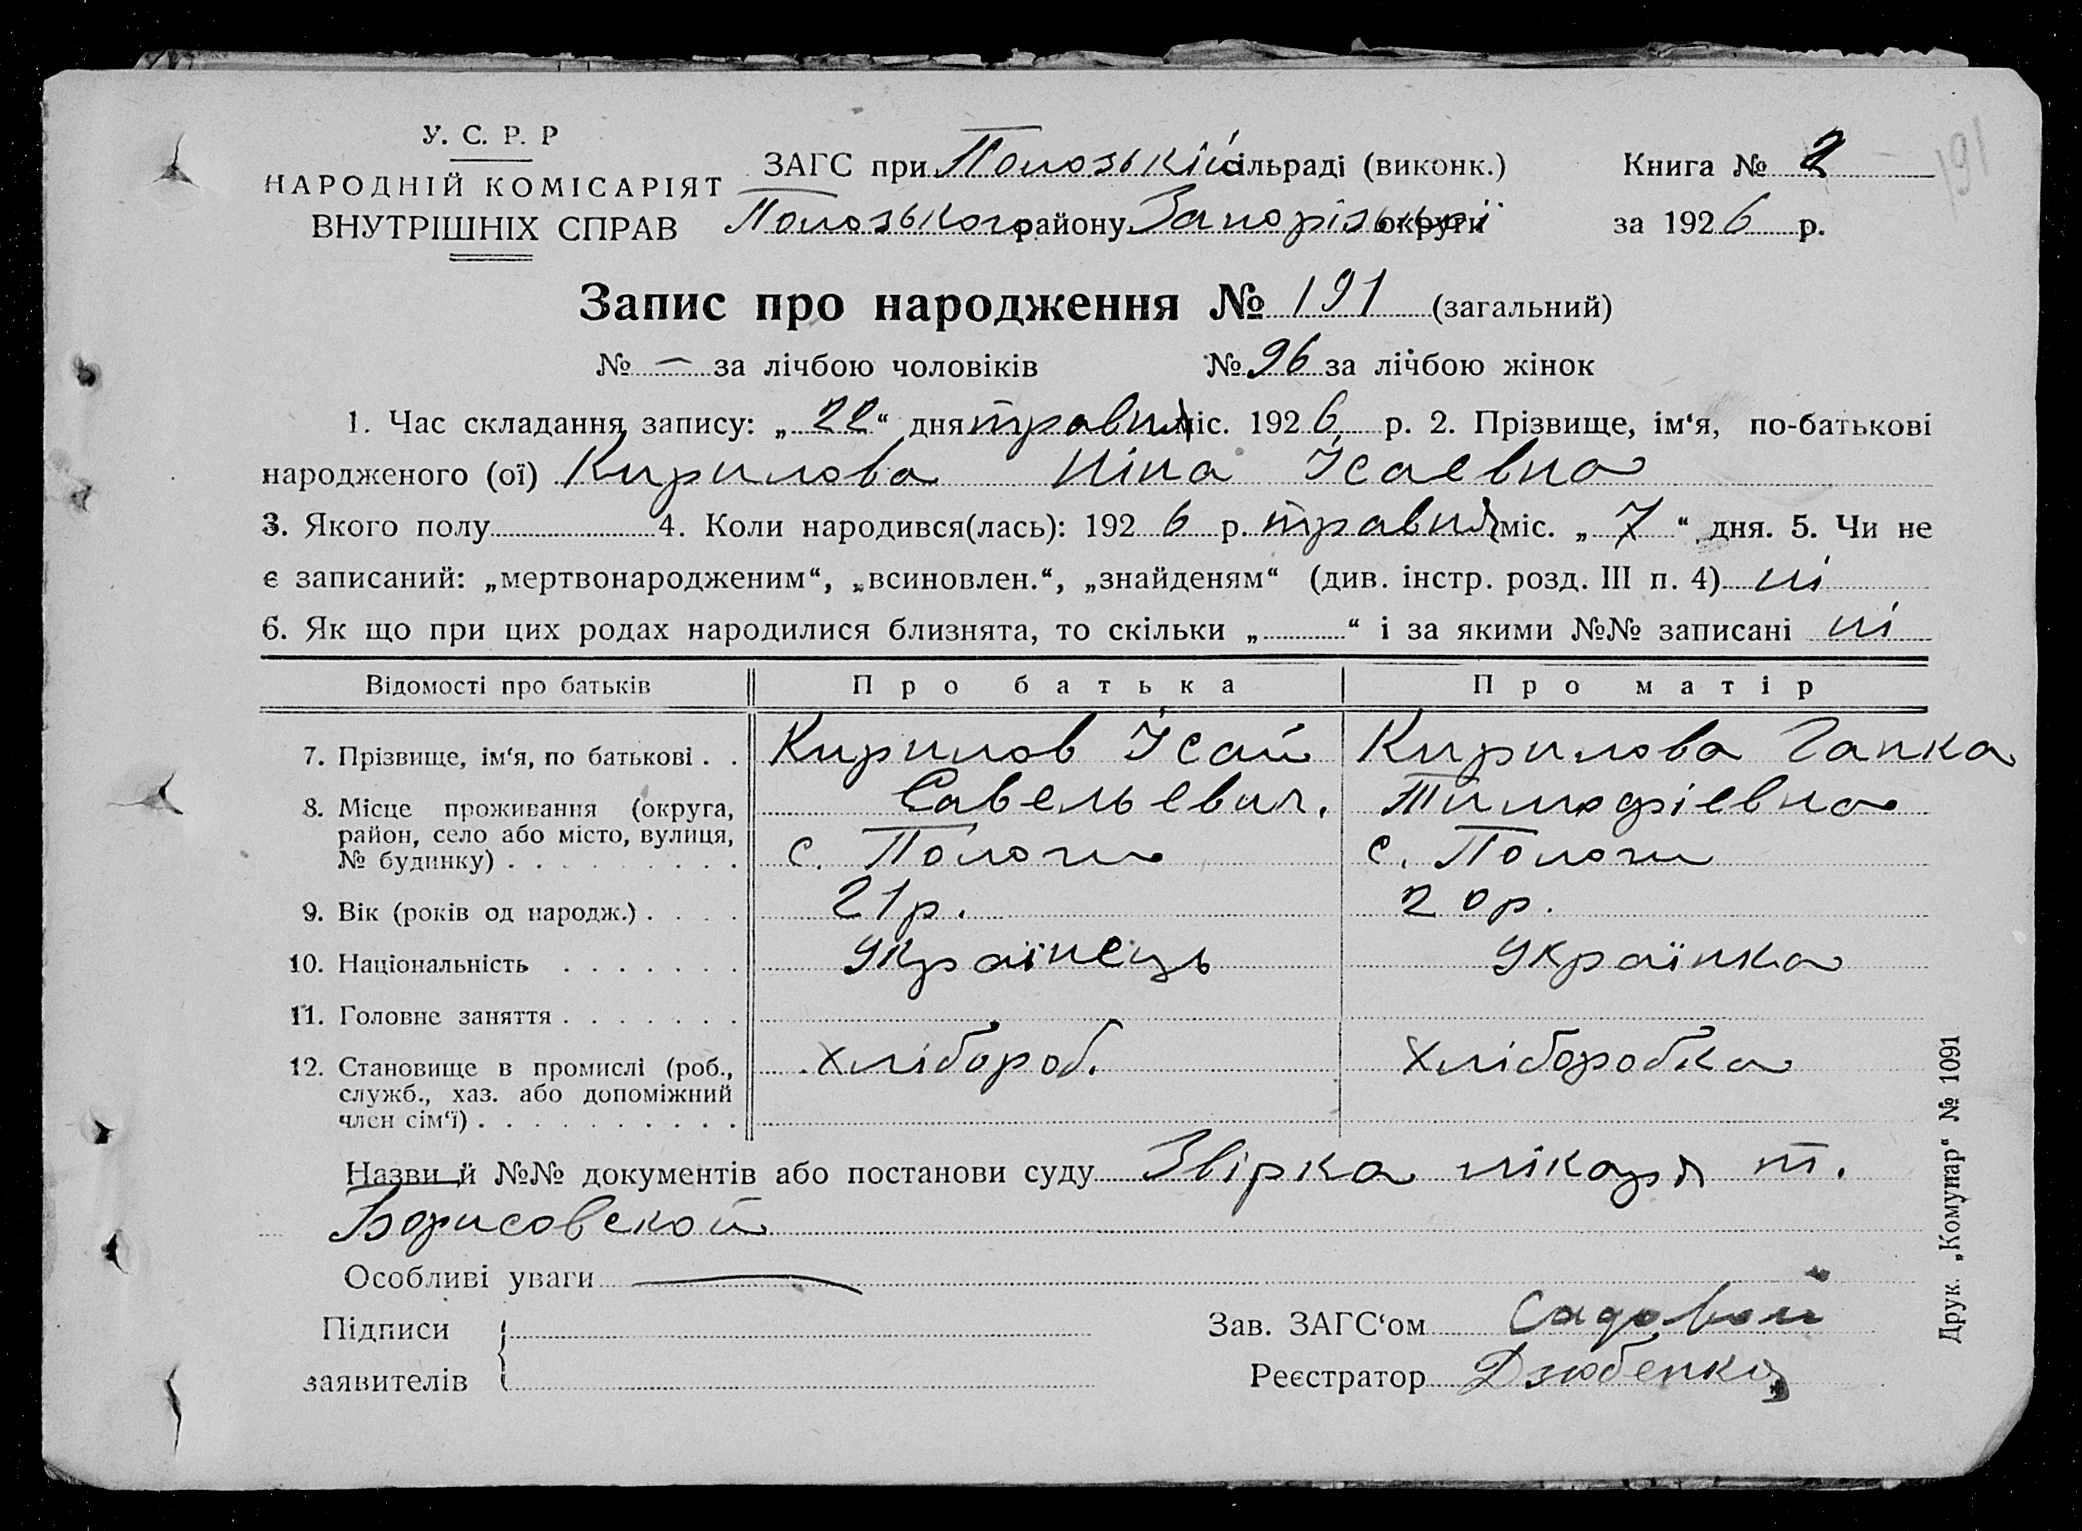 У. С. Р. Р
НАРОДНІЙ КОМІСАРІЯТ
ВНУТРІШНІХ СПРАВ
ЗАГС при Пологзькій сільраді (виконк.)
Пологзького району Запорізької округи
Книга № 2
191
за 1926 р.
Запис про народження № 191 (загальний)
№ — за лічбою чоловіків № 96 за лічбою жінок
1. Час складання запису: „22“ дня травня міс. 1926 р. 2. Прізвище, ім‘я, по-батькові
народженого (ої) Кирилова Ніна Ісаевна
3. Якого полу 4. Коли народився(лась): 1926 р. травня міс. „7“ дня. 5. Чи не
є записаний: „мертвонародженим“, „всиновлен.“, „знайденям“ (див. інстр. розд. III п. 4) ні
6. Як що при цих родах народилися близнята, то скільки „ “ і за якими №№ записані ні
Відомості про батьків Про батька Про матір
7. Прізвище, ім‘я, по батькові . . Кирилов Ісай Кирилова Гапка
Савельевич. Тимофіевна
8. Місце проживання (округа,
район, село або місто, вулиця,
№ будинку) . . . . . . . . . с. Пологи с. Пологи
9. Вік (років од народж.) . . . . 21 р. 20 р.
10. Національність . . . . . . . Українець Українка
11. Головне заняття . . . . . . .
хлібороб. хліборобка
12. Становище в промислі (роб.,
служб., хаз. або допоміжний
член сім‘ї) . . . . . . . . . .
Назви й №№ документів або постанови суду Звірка лікаря т.
Борисовской
Особливі уваги —
Підписи
заявителів
Зав. ЗАГС‘ом Садовой
Реєстратор Дзюбенко
Друк. „Комунар“ № 1091